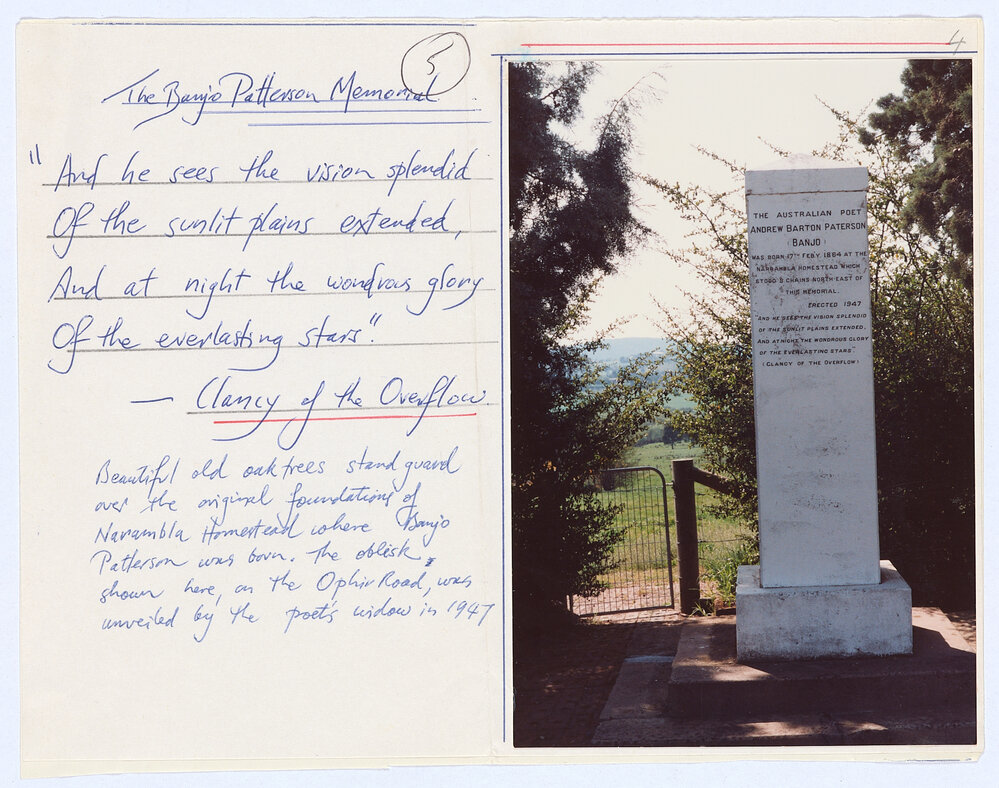 5
The Banjo Patterson Memorial
"And he sees the vision splendid
Of the sunlit plains extended,
And at night the wondrous glory
Of the everlasting stars".
— Clancy of the Overflow.
Beautiful old oak trees stand guard
over the original foundations of
Narambla Homestead where Banjo
Patterson was born. The oblisk,
shown here, on the Ophir Road, was
unveiled by the poet's widow in 1947
4
THE AUSTRALIAN POET
ANDREW BARTON PATERSON
(BANJO)
WAS BORN 17TH FEBY. 1864 AT THE
NARRAMBLA HOMESTEAD WHICH
STOOD 8 CHAINS NORTH-EAST OF
THIS MEMORIAL.
ERECTED 1947
"AND HE SEES THE VISION SPLENDID
OF THE SUNLIT PLAINS EXTENDED,
AND AT NIGHT THE WONDROUS GLORY
OF THE EVERLASTING STARS.
(CLANCY OF THE OVERFLOW)